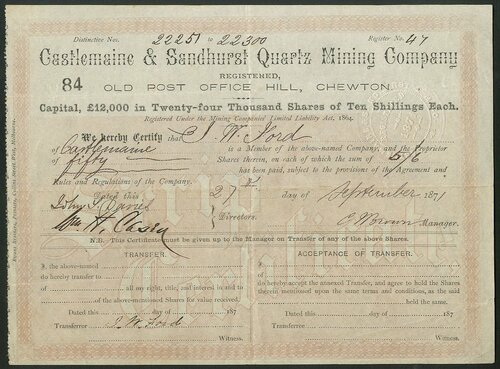 Distinctive Nos. 22251 to 22300 Register No. 47
Castlemaine & Sandhurst Quartz Mining Company
REGISTERED,
84 OLD POST OFFICE HILL, CHEWTON.
Capital, £12,000 in Twenty-four Thousand Shares of Ten Shillings Each.
Registered Under the Mining Companies' Limited Liability Act, 1864.
We hereby Certify that J W Ford
of Castlemaine is a Member of the above-named Company, and the Proprietor
of fifty Shares therein, on each of which the sum of 5/6
has been paid, subject to the provisions of the Agreement and
Rules and Regulations of the Company.
Dated this 27th day of September 1871
John Davies
Wm H. Casey Directors.
Manager.
N.B. This Certificate must be given up to the Manager on Transfer of any of the above Shares.
TRANSFER.
I, the above-named
do hereby transfer to
of all my right, title, and interest in and to
of the above-mentioned Shares for value received
Dated this day of 187
Transferror J. W. Ford
Witness.
ACCEPTANCE OF TRANSFER.
I,
of
do hereby accept the annexed Transfer, and agree to hold the Shares
therein mentioned upon the same terms and conditions, as the said
held the same.
Dated this day of 187
Transferree
Witness.
Scrip
Certificate